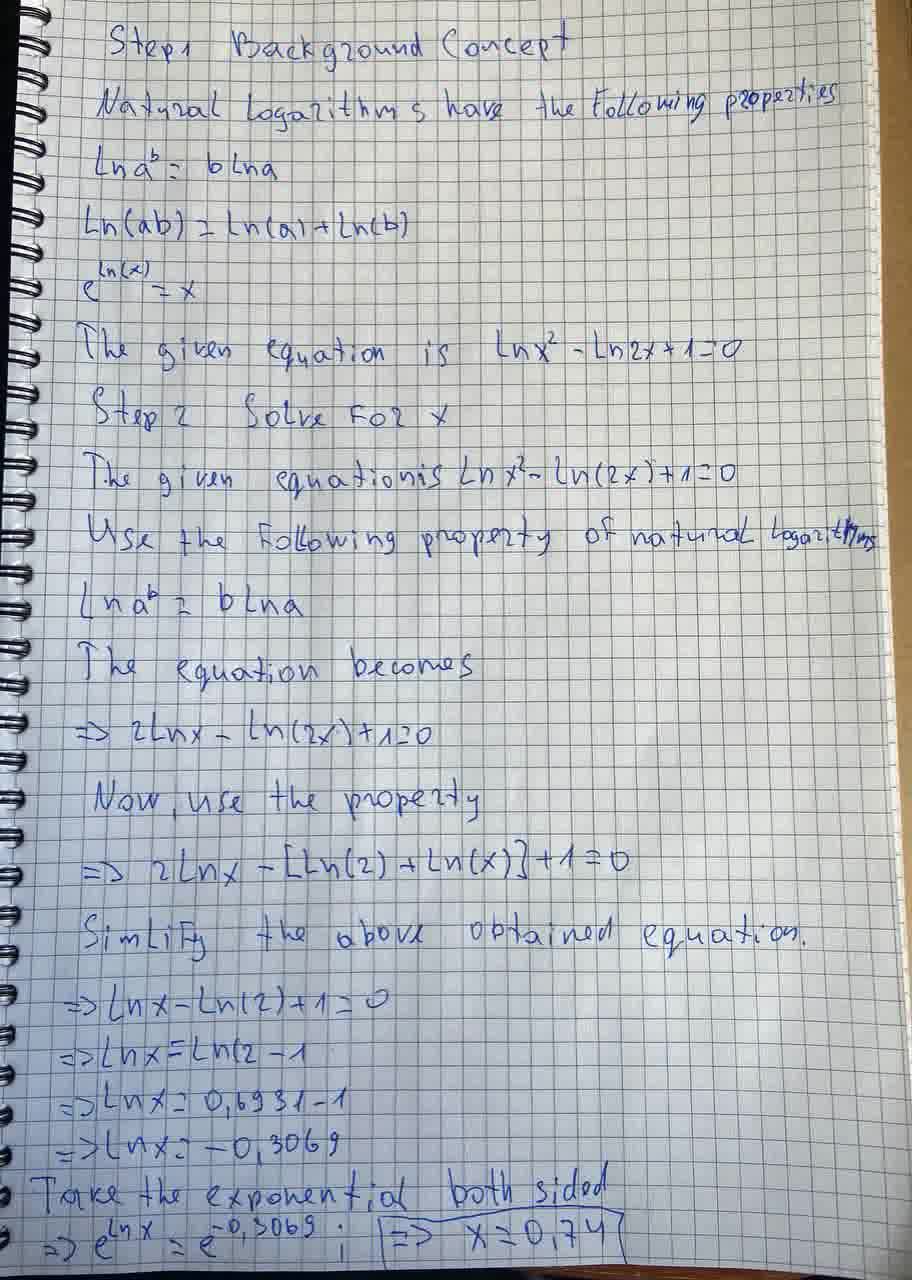 Step1 Background Concept
Natural Logarithms have the Following properties
Ln a^b = b Ln a
Ln(ab) = Ln(a) + Ln(b)
e^Ln(x) = x
The given equation is Ln x² - Ln 2x + 1 = 0
Step 2 Solve For x
The given equation is Ln x² - Ln(2x) + 1 = 0
Use the Following property of natural Logarithms
Ln a^b = b Ln a
The equation becomes
=> 2 Ln x - Ln(2x) + 1 = 0
Now, use the property
=> 2 Ln x - [Ln(2) + Ln(x)] + 1 = 0
SimLiFy the above obtained equation.
=> Ln x - Ln(2) + 1 = 0
=> Ln x = Ln(2 - 1
=> Ln x = 0,6931 - 1
=> Ln x = -0,3069
Take the exponential both sided
=> e^Ln x = e^-0,3069 ; => x = 0,74